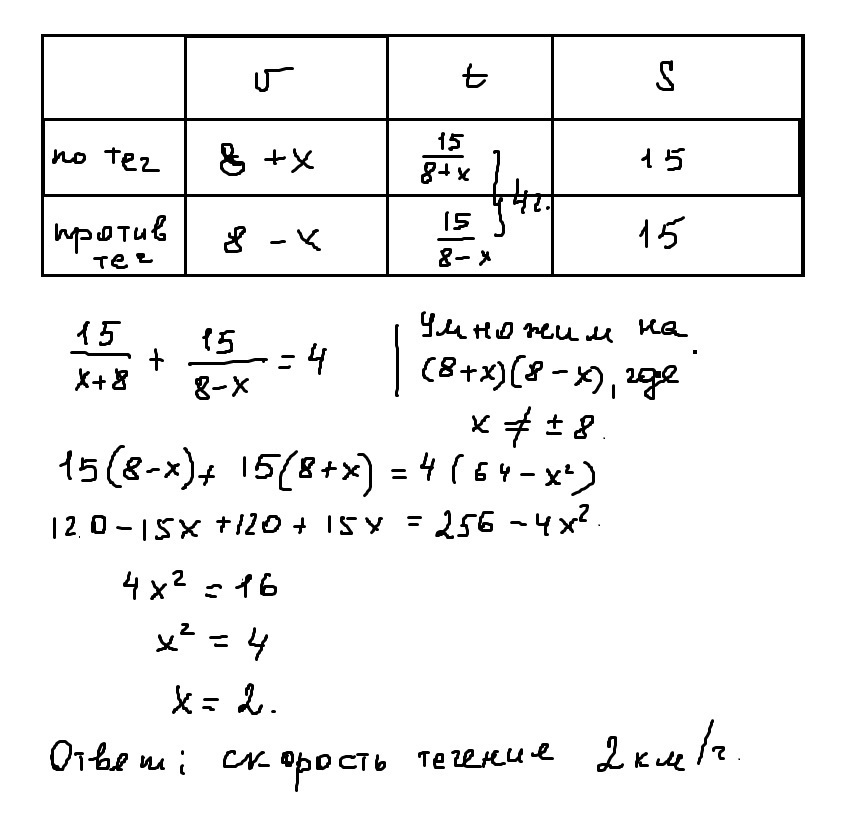 v t S
по теч 8 + x 15/(8+x) 15
4ч.
против теч 8 - x 15/(8-x) 15
15/(x+8) + 15/(8-x) = 4 | Умножим на
(8+x)(8-x), где
x ≠ ± 8.
15(8-x) + 15(8+x) = 4(64-x²)
120 - 15x + 120 + 15x = 256 - 4x².
4x² = 16
x² = 4
x = 2.
Ответ: скорость течение 2 км/ч.